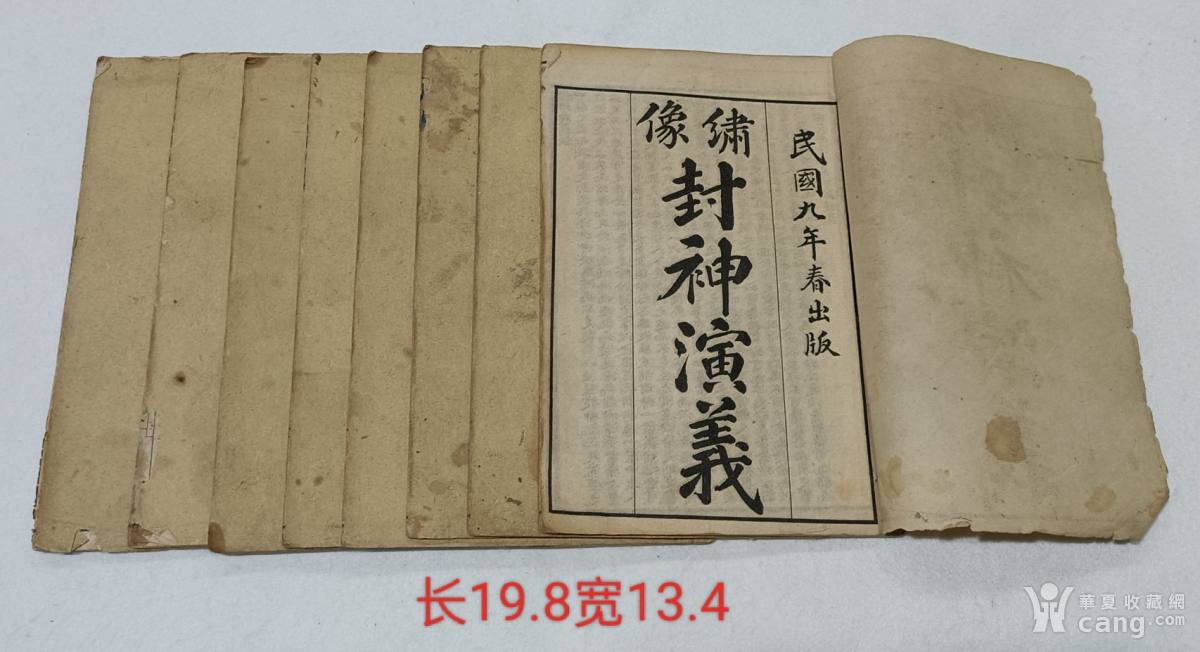 民國九年春出版
繡像
封神演義
长19.8宽13.4
華夏收藏網
cang.com